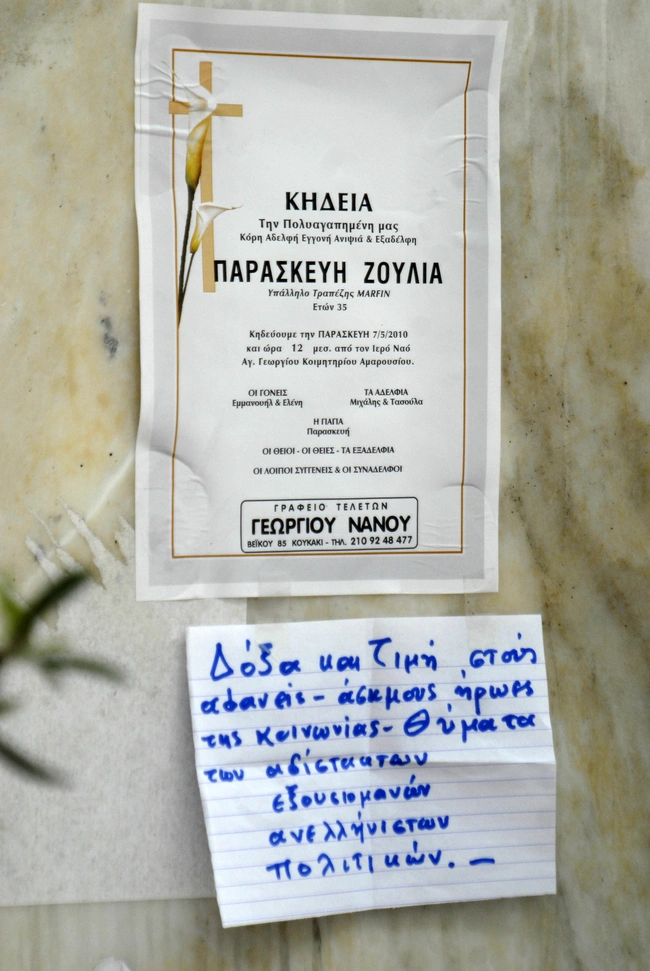 ΚΗΔΕΙΑ
Την Πολυαγαπημένη μας
Κόρη Αδελφή Εγγονή Ανιψιά & Εξαδέλφη
ΠΑΡΑΣΚΕΥΗ ΖΟΥΛΙΑ
Υπάλληλο Τραπέζης MARFIN
Ετών 35
Κηδεύουμε την ΠΑΡΑΣΚΕΥΗ 7/5/2010
και ώρα 12 μεσ. από τον Ιερό Ναό
Αγ. Γεωργίου Κοιμητηρίου Αμαρουσίου.
ΟΙ ΓΟΝΕΙΣ
Εμμανουήλ & Ελένη
ΤΑ ΑΔΕΛΦΙΑ
Μιχάλης & Τασούλα
Η ΓΙΑΓΙΑ
Παρασκευή
ΟΙ ΘΕΙΟΙ - ΟΙ ΘΕΙΕΣ - ΤΑ ΕΞΑΔΕΛΦΙΑ
ΟΙ ΛΟΙΠΟΙ ΣΥΓΓΕΝΕΙΣ & ΟΙ ΣΥΝΑΔΕΛΦΟΙ
ΓΡΑΦΕΙΟ ΤΕΛΕΤΩΝ
ΓΕΩΡΓΙΟΥ ΝΑΝΟΥ
ΒΕΪΚΟΥ 85 ΚΟΥΚΑΚΙ - ΤΗΛ. 210 92 48 477
Δόξα και Τιμή στούς
αφανείς - άσημους ήρωες
της κοινωνίας - Θύματα
των αδίστακτων
εξουσιομανών
ανελλήνιστων
πολιτικών. -